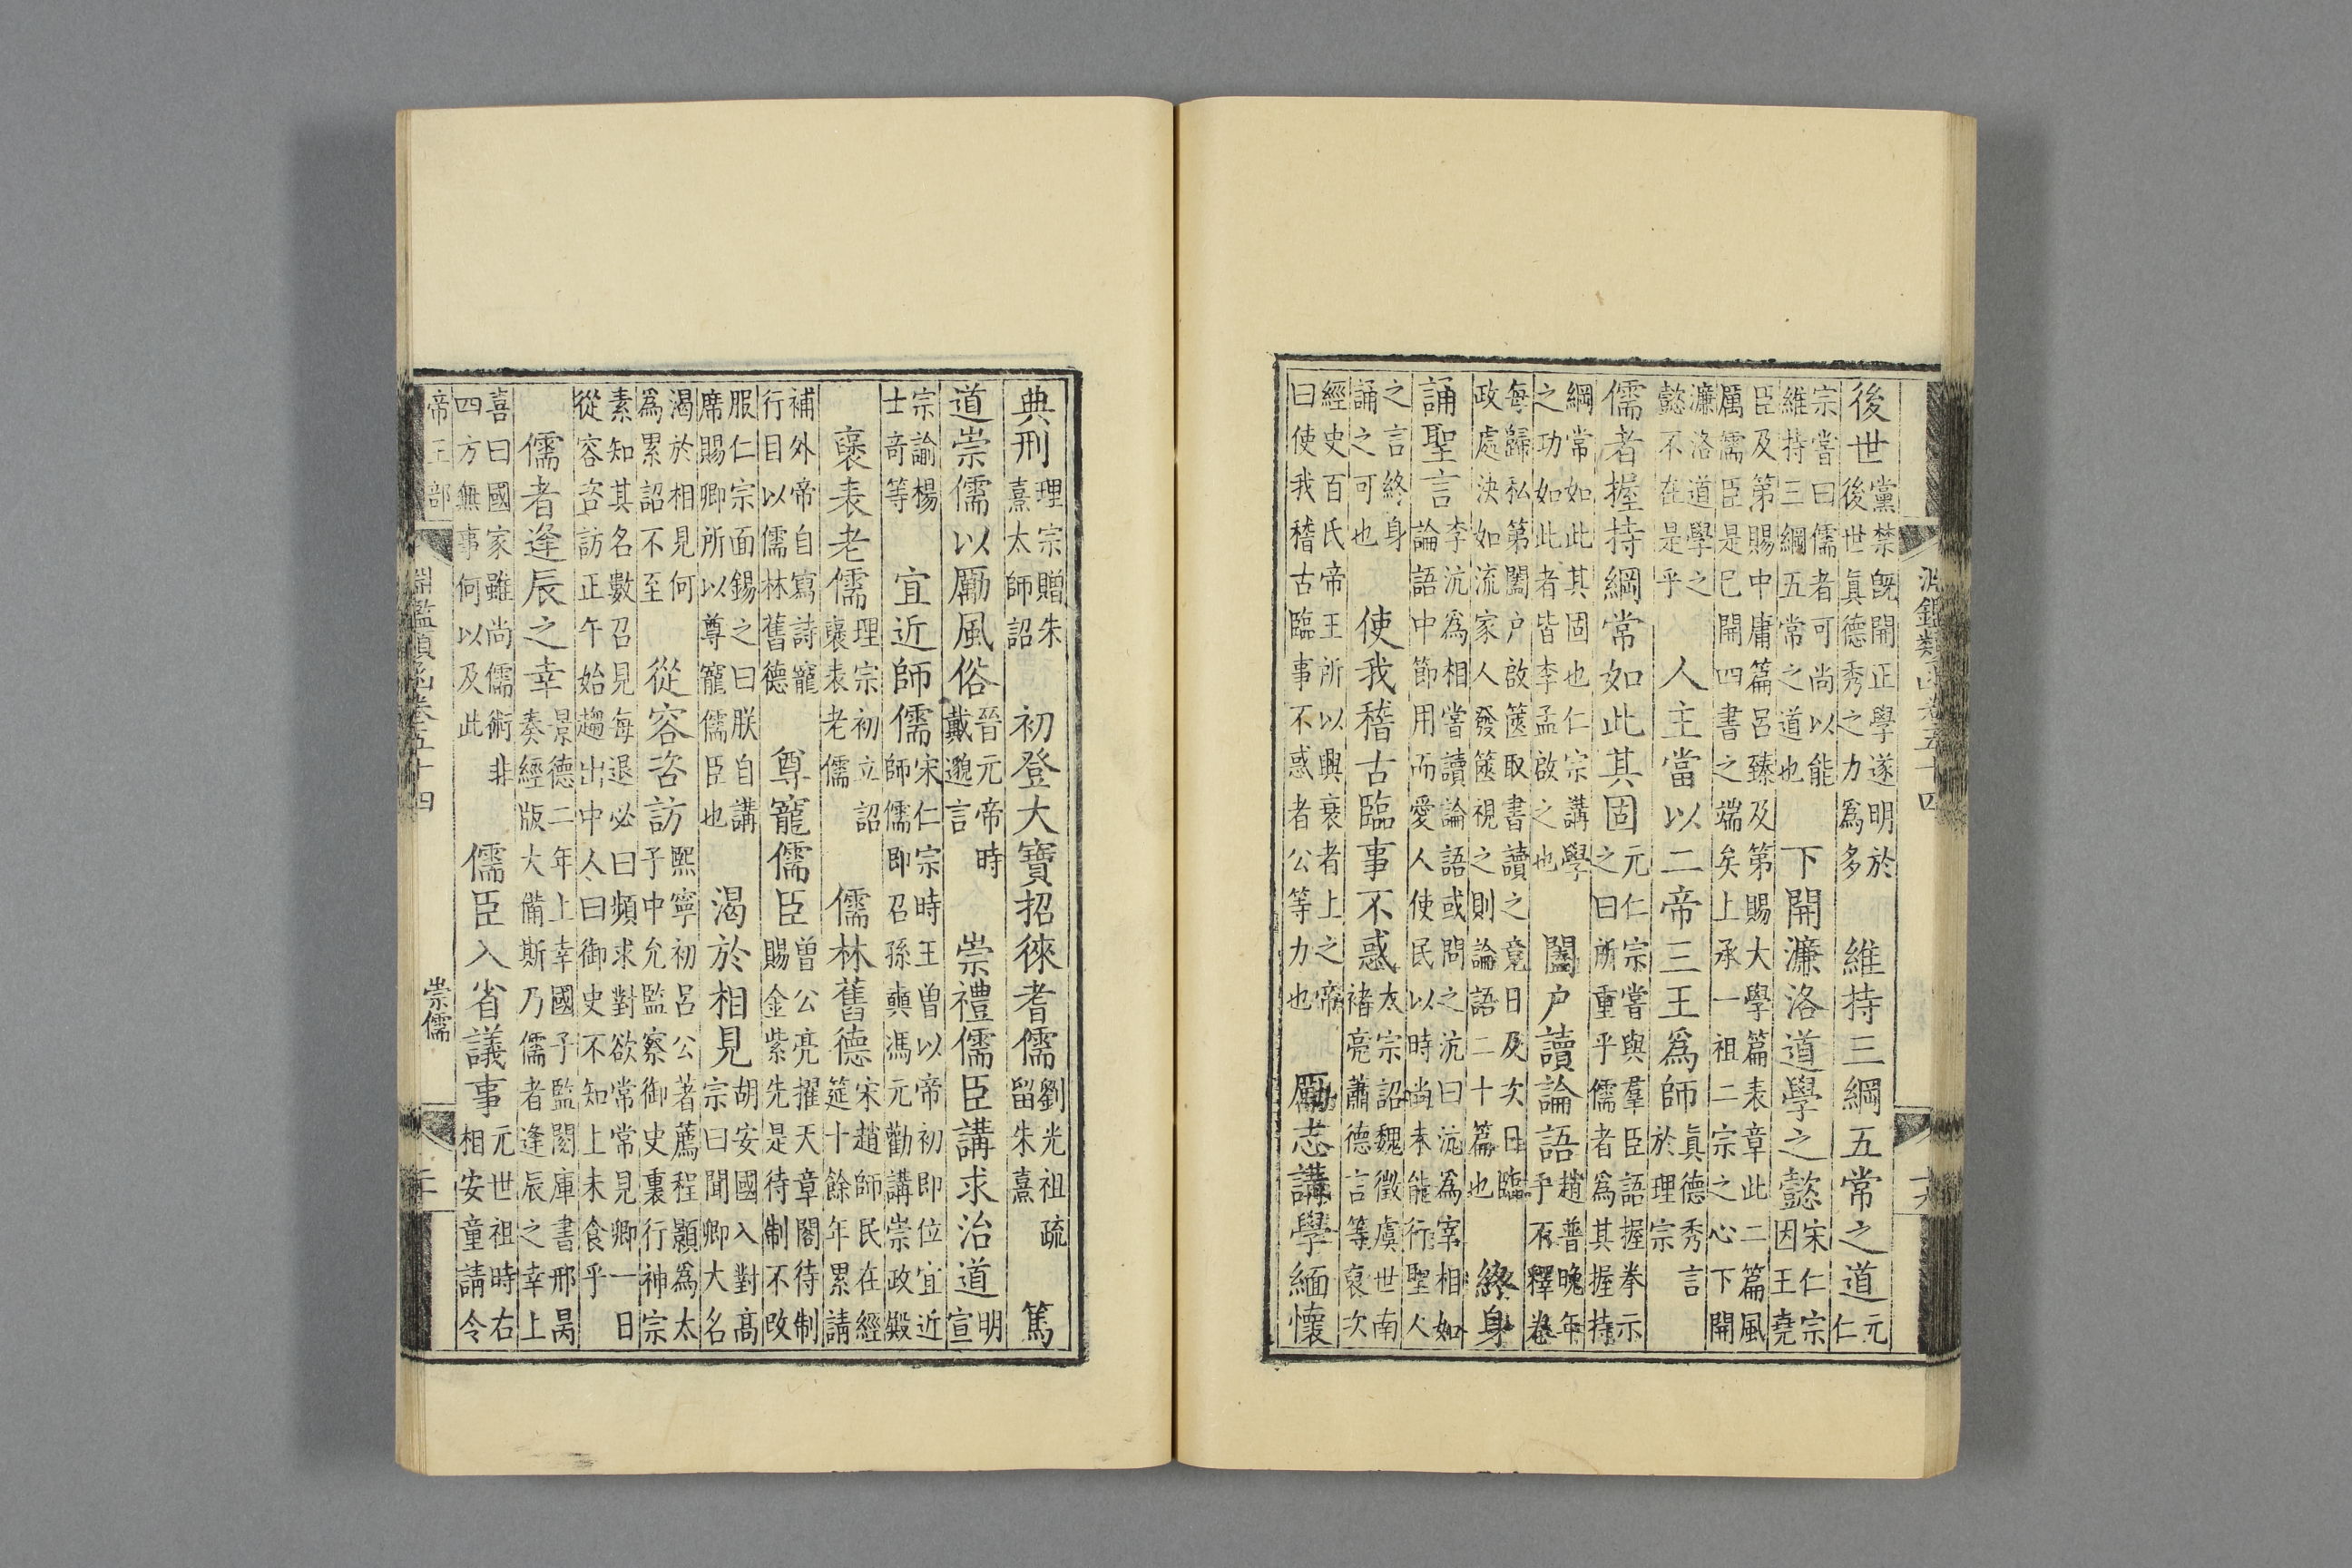 淵鑑類函卷五十四 十六
後世黨禁旣開正學遂明於後世眞德秀之力爲多 維持三綱五常之道元仁
宗嘗曰儒者可尚以能維持三綱五常之道也 下開濂洛道學之懿宋仁宗因王堯
臣及第賜中庸篇呂臻及第賜大學篇表章此二篇風厲儒臣是已開四書之端矣上承一祖二宗之心下開
濂洛道學之懿不在是乎 人主當以二帝三王爲師眞德秀言於理宗
儒者握持綱常如此其固元仁宗嘗與羣臣語握拳示之曰所重乎儒者爲其握持
綱常如此其固也仁宗講學之功如此者皆李孟啟之也 闔户讀論語趙普晚年手不釋卷
每歸私第闔户啟篋取書讀之竟日及次日臨政處決如流家人發篋視之則論語二十篇也 終身
誦聖言李沆爲相嘗讀論語或問之沆曰沆爲宰相如論語中節用而愛人使民以時尚未能行聖人
之言終身誦之可也 使我稽古臨事不惑太宗詔魏徵虞世南褚亮蕭德言等裒次
經史百氏帝王所以興衰者上之帝曰使我稽古臨事不惑者公等力也 勵志講學緬懷
典刑理宗贈朱熹太師詔 初登大寶招徠耆儒劉光祖疏留朱熹 篤
道崇儒以勵風俗晉元帝時戴邈言 崇禮儒臣講求治道明宣
宗諭楊士奇等 宜近師儒宋仁宗時王曾以帝初即位宜近師儒即召孫奭馮元勸講崇政殿
襃表老儒理宗初立詔襃表老儒 儒林舊德宋趙師民在經筵十餘年累請
補外帝自寫詩寵行目以儒林舊德 尊寵儒臣曾公亮擢天章閣待制賜金紫先是待制不改
服仁宗面錫之曰朕自講席賜卿所以尊寵儒臣也 渴於相見胡安國入對高宗曰聞卿大名
渴於相見何爲累詔不至 從容咨訪熙寧初呂公著薦程顥爲太子中允監察御史裏行神宗
素知其名數召見每退必曰頻求對欲常常見卿一日從容咨訪正午始趨出中人曰御史不知上未食乎
儒者逢辰之幸景德二年上幸國子監閱庫書邢昺奏經版大備斯乃儒者逢辰之幸上
喜曰國家雖尚儒術非四方無事何以及此 儒臣入省議事元世祖時右相安童請令
帝王部 淵鑑類函卷五十四 崇儒